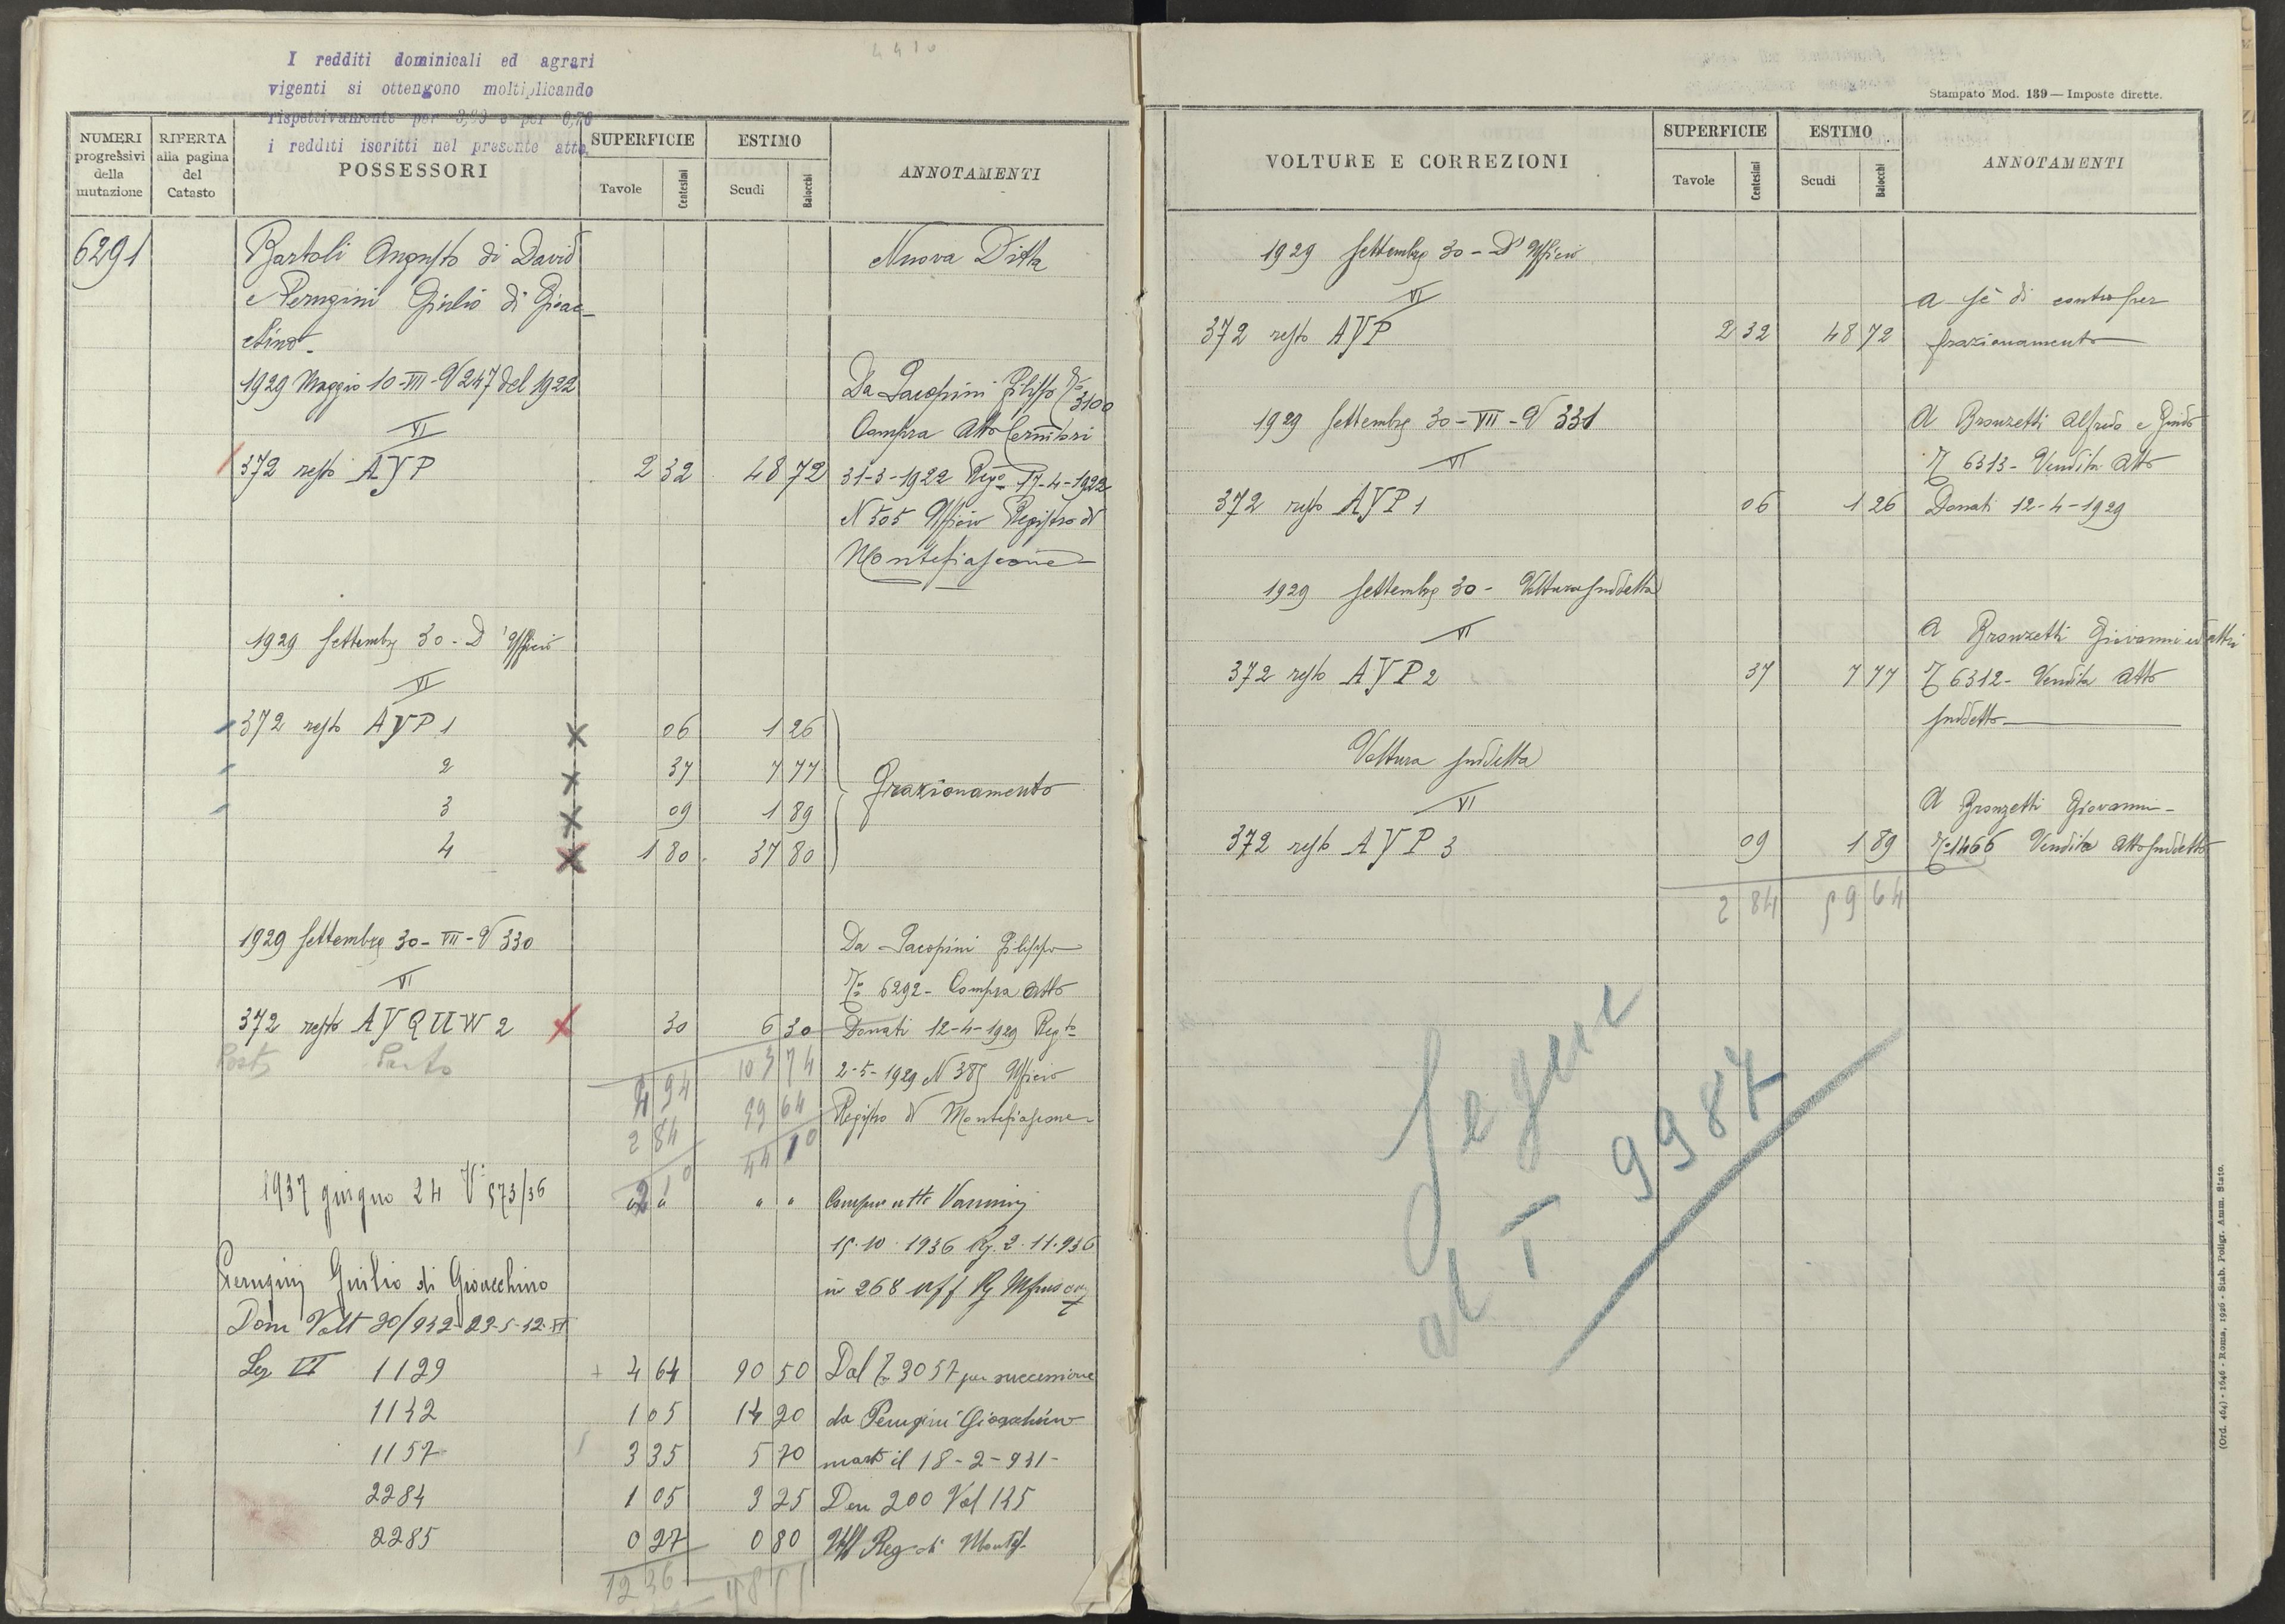 4410
I redditi dominicali ed agrari
vigenti si ottengono moltiplicando
rispettivamente per e per 0,70
i redditi iscritti nel presente atto.
NUMERI progressivi della mutazione
RIFERTA alla pagina del Catasto
POSSESSORI
SUPERFICIE
Tavole Centesimi
ESTIMO
Scudi Baiocchi
ANNOTAMENTI
6291 Bartoli Augusto di David Nuova Ditta
e Perugini Giulio di Gioac-
chino.
1929 Maggio 10-VII-V 247 del 1922 Da Jacopini Filippo 3100
VI Compra Atto
372 resto AYP 2 32 48 72 31-3-1922 Rego 17-4-1922
N 505 Ufficio Registro di
Montefiascone
1929 Settembre 30 - D'Ufficio
VI
372 resto AYP 1 06 1 26
2 37 7 77 Frazionamento
3 09 1 89
4 1 80 37 80
1929 Settembre 30-VII-V 330 Da Jacopini Filippo
VI 6292 - Compra Atto
372 resto AYQUW 2 30 6 30 Donati 12-4-1929 Regto
103 74 2-5-1929 N 385 Ufficio
4 94 59 64 Registro di Montefiascone
2 84 44 10
2 10
1937 giugno 24 V 573/36 " " " " Compra atto Vannini
15.10.1936 Rg. 2.11.936
Perugini Giulio di Gioacchino n 268 uff Rg
Dom Volt 20/932-23-5-32-
Sez VI 1129 4 64 90 50 Dal 3057 per successione
1132 1 05 14 20 da Perugini Gioacchino
1157 3 35 5 70 morto il 18-2-931-
2284 1 05 3 25 Den 200 Vol 135
2285 0 27 0 80 Uff Reg di Montef
12 36
Stampato Mod. 139 — Imposte dirette.
VOLTURE E CORREZIONI
SUPERFICIE
Tavole Centesimi
ESTIMO
Scudi Baiocchi
ANNOTAMENTI
1929 Settembre 30 - D'Ufficio
VI a sè di contro per
372 resto AYP 2 32 48 72 frazionamento
1929 Settembre 30-VII-V 331 A Bronzetti Alfredo e Guido
VI 6313 - Vendita Atto
372 resto AYP 1 06 1 26 Donati 12-4-1929
1929 Settembre 30 - Voltura suddetta
VI A Bronzetti Giovanni ed altri
372 resto AYP 2 37 7 77 6312 - Vendita Atto
suddetto
Voltura suddetta
VI A Bronzetti Giovanni -
372 resto AYP 3 09 1 89 1466 Vendita Atto suddetto
2 84 59 64
Segue
al I 9987
(Ord. 464) - 1646 - Roma, 1926 - Stab. Poligr. Amm. Stato.